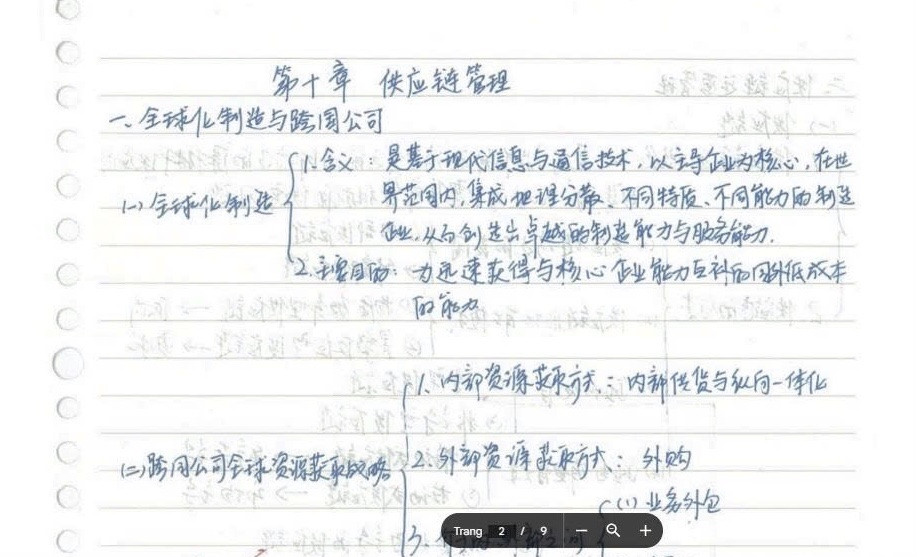 第十章 供应链管理
一、全球化制造与跨国公司
1.含义：是基于现代信息与通信技术，以主导企业为核心，在世
(一)全球化制造
界范围内，集成地理分散、不同特质、不同能力的制造
企业，从而创造出卓越的制造能力与服务能力.
2.主要目的：为迅速获得与核心企业能力互补的国外低成本
的能力
1.内部资源获取方式：内部供货与纵向一体化
(二)跨国公司全球资源获取战略
2.外部资源获取方式：外购
(1)业务外包
3.
Trang 2 / 9 − +